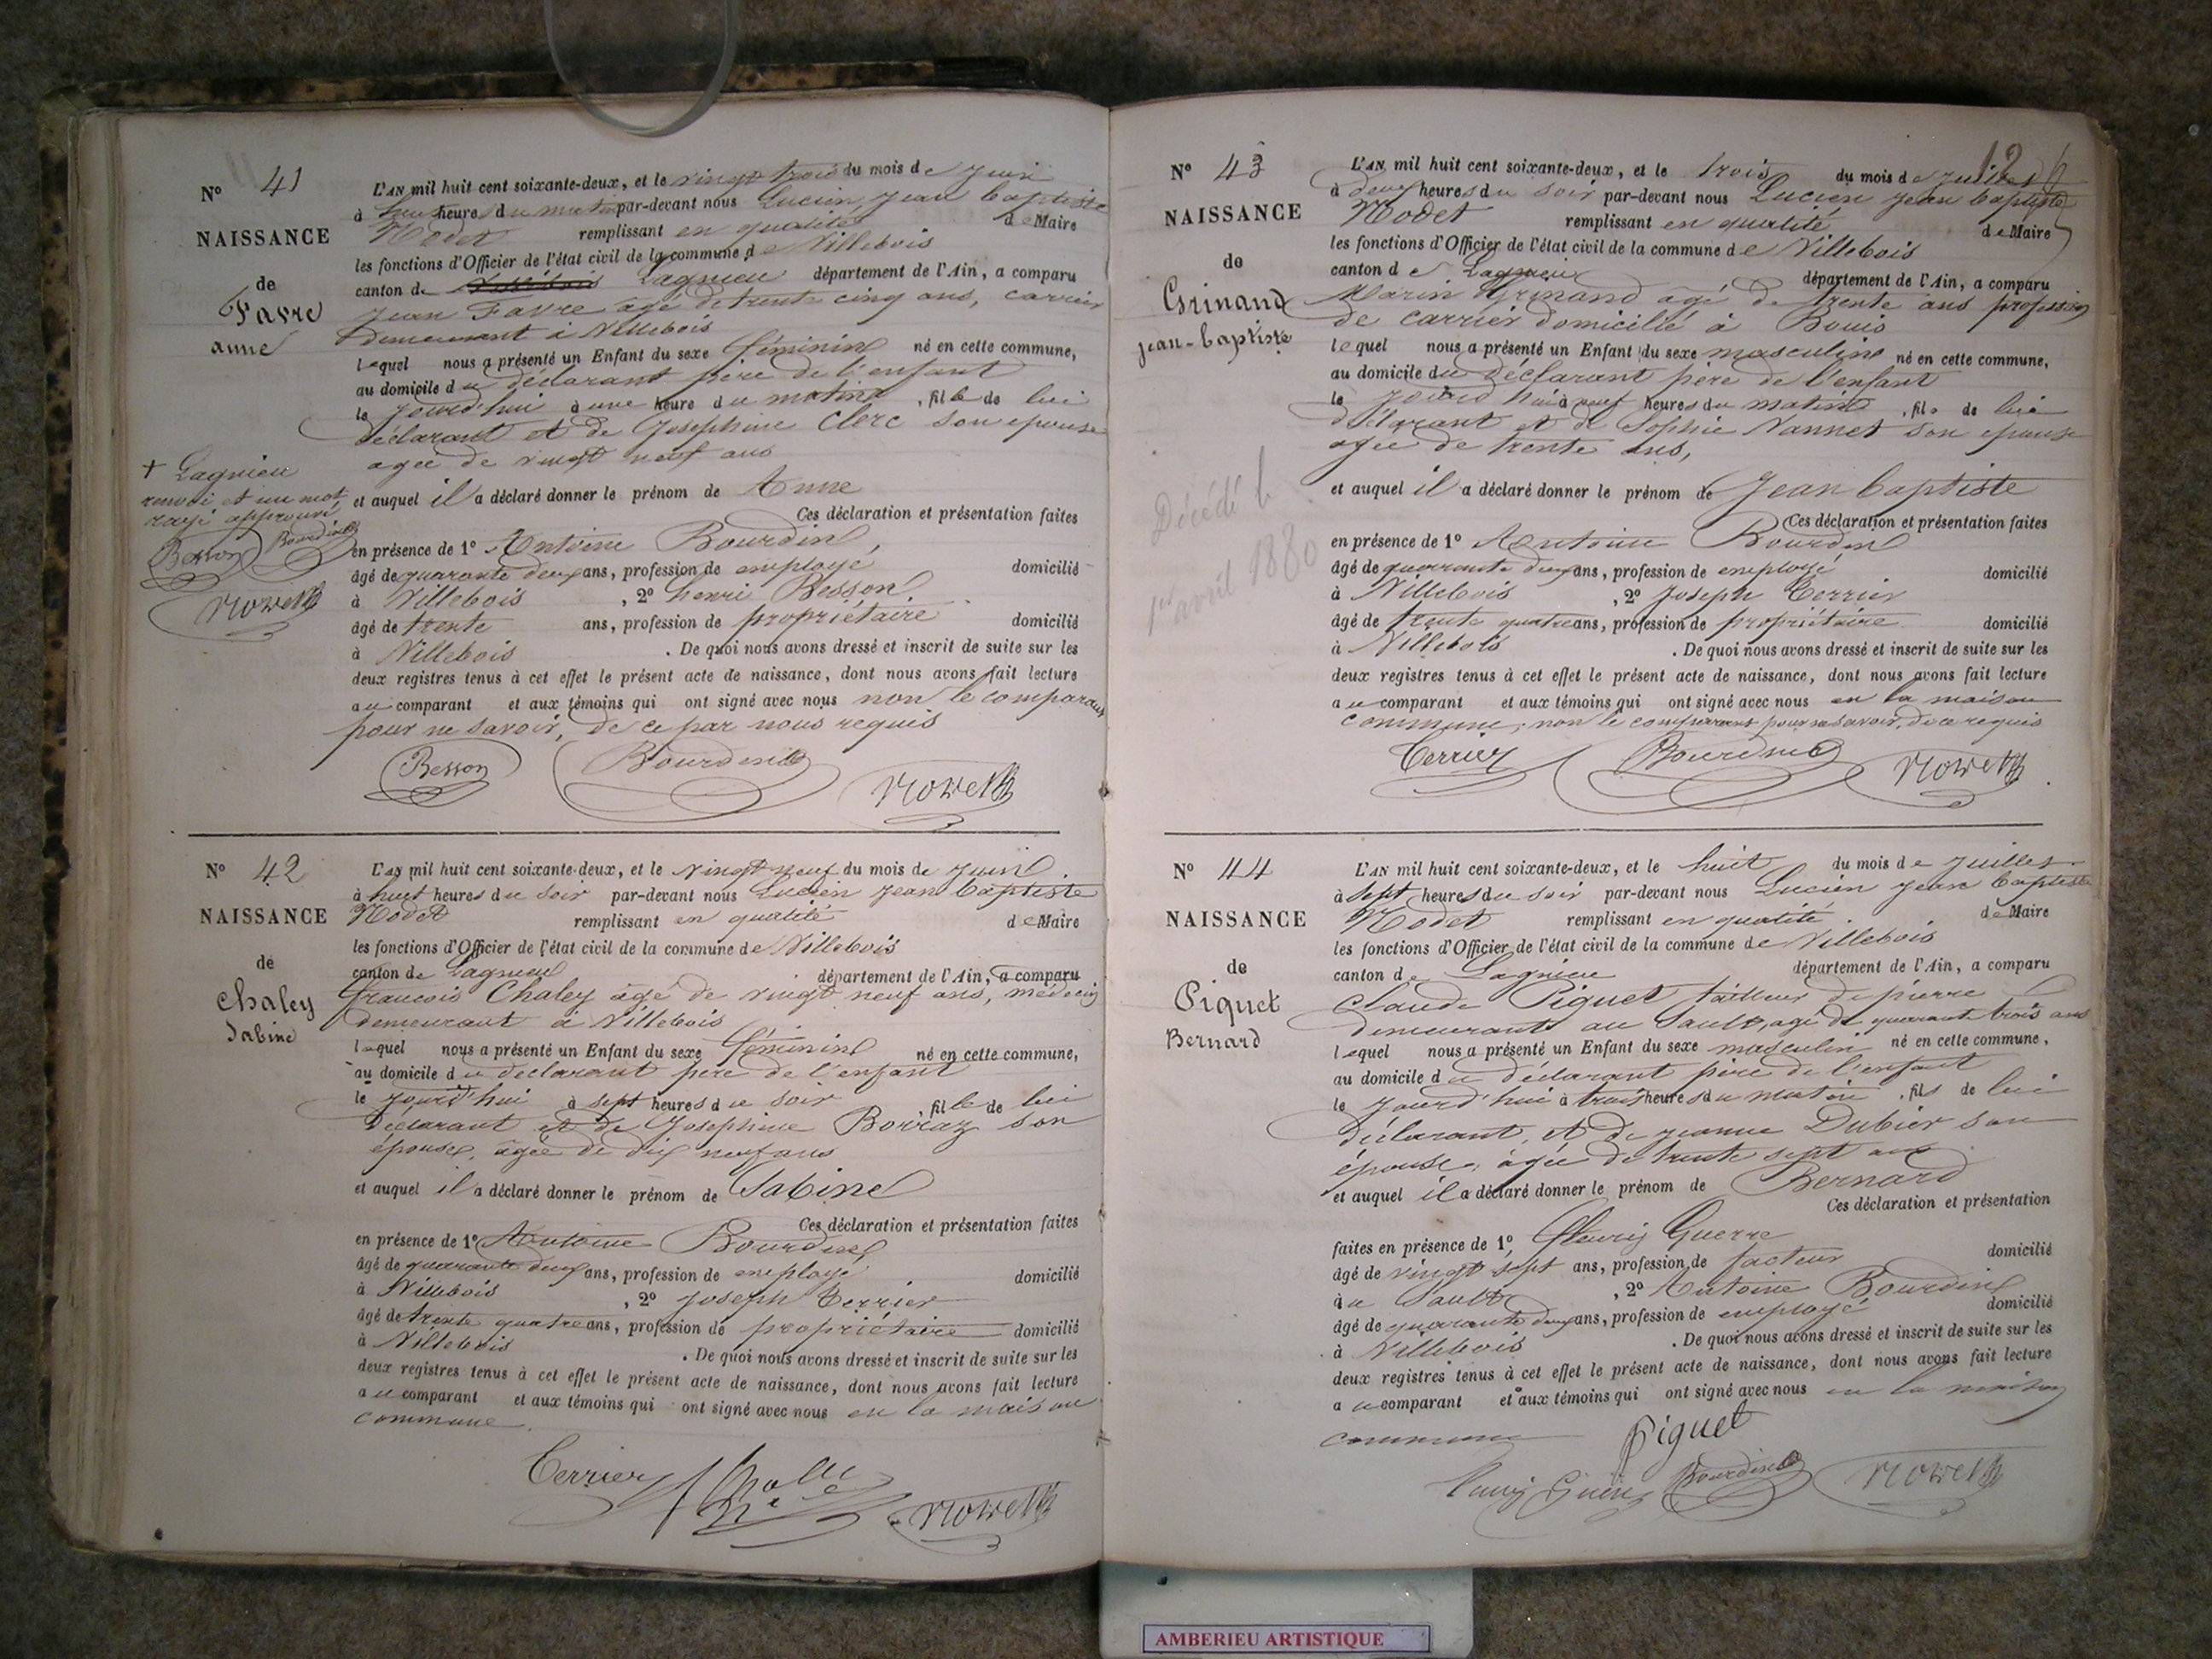 N° 41
NAISSANCE
de
Favre
anne
L'AN mil huit cent soixante-deux, et le vingt trois du mois de juin
à huit heures du matin par-devant nous Lucien Jean baptiste
Nodet remplissant en qualité de Maire
les fonctions d'Officier de l'état civil de la commune de Villebois
canton de Lagnieu département de l'Ain, a comparu
Jean Favre agé de trente cinq ans, carrier
demeurant à Villebois
lequel nous a présenté un Enfant du sexe féminin né en cette commune,
au domicile du déclarant père de l'enfant
le jourd'hui à une heure du matin, fille de lui
déclarant et de Josephine Clerc son epouse
agée de vingt neuf ans
et auquel il a déclaré donner le prénom de Anne
Ces déclaration et présentation faites
en présence de 1° Antoine Bourdin,
âgé de quarante deux ans, profession de employé domicilié
à Villebois, 2° henri Besson
âgé de trente ans, profession de propriétaire domicilié
à Villebois. De quoi nous avons dressé et inscrit de suite sur les
deux registres tenus à cet effet le présent acte de naissance, dont nous avons fait lecture
au comparant et aux témoins qui ont signé avec nous non le comparant
pour ne savoir, de ce par nous requis
Besson Bourdin Nodet
+ Lagnieu
renvoi et un mot
rayé approuvé
Besson Bourdin
Nodet
N° 42
NAISSANCE
de
Chaley
Sabine
L'AN mil huit cent soixante-deux, et le vingt neuf du mois de juin
à huit heures du soir par-devant nous Lucien Jean baptiste
Nodet remplissant en qualité de Maire
les fonctions d'Officier de l'état civil de la commune de Villebois
canton de Lagnieu département de l'Ain, a comparu
francois Chaley âgé de vingt neuf ans, médecin
demeurant à Villebois
lequel nous a présenté un Enfant du sexe féminin né en cette commune,
au domicile du déclarant père de l'enfant
le jourd'hui à sept heures du soir, fille de lui
déclarant et de Josephine Borraz son
épouse, âgée de dix neuf ans
et auquel il a déclaré donner le prénom de Sabine
Ces déclaration et présentation faites
en présence de 1° Antoine Bourdin
âgé de quarante deux ans, profession de employé domicilié
à Villebois, 2° Joseph Terrier
âgé de trente quatre ans, profession de propriétaire domicilié
à Villebois. De quoi nous avons dressé et inscrit de suite sur les
deux registres tenus à cet effet le présent acte de naissance, dont nous avons fait lecture
au comparant et aux témoins qui ont signé avec nous en la maison
commune.
Terrier Nodet
12
N° 43
NAISSANCE
de
Grinand
jean-baptiste
L'AN mil huit cent soixante-deux, et le trois du mois de juillet
à deux heures du soir par-devant nous Lucien Jean baptiste
Nodet remplissant en qualité de Maire
les fonctions d'Officier de l'état civil de la commune de Villebois
canton de Lagnieu département de l'Ain, a comparu
Marin Grinand âgé de trente ans profession
de carrier domicilié à Bouis
lequel nous a présenté un Enfant du sexe masculin né en cette commune,
au domicile du déclarant père de l'enfant
le jourd'hui à neuf heures du matin, fils de lui
déclarant et de Sophie Vannet son épouse
agée de trente ans,
et auquel il a déclaré donner le prénom de Jean baptiste
Ces déclaration et présentation faites
en présence de 1° Antoine Bourdin
âgé de quarante deux ans, profession de employé domicilié
à Villebois, 2° Joseph Terrier
âgé de trente quatre ans, profession de propriétaire domicilié
à Villebois. De quoi nous avons dressé et inscrit de suite sur les
deux registres tenus à cet effet le présent acte de naissance, dont nous avons fait lecture
au comparant et aux témoins qui ont signé avec nous en la maison
commune, non le comparant pour ne savoir, de ce requis
Terrier Bourdin Nodet
Décédé le
1er avril 1880
N° 44
NAISSANCE
de
Piquet
Bernard
L'AN mil huit cent soixante-deux, et le huit du mois de juillet
à sept heures du soir par-devant nous Lucien Jean baptiste
Nodet remplissant en qualité de Maire
les fonctions d'Officier de l'état civil de la commune de Villebois
canton de Lagnieu département de l'Ain, a comparu
Claude Piquet tailleur de pierre
demeurant au Sault, agé de quarante trois ans
lequel nous a présenté un Enfant du sexe masculin né en cette commune,
au domicile du déclarant père de l'enfant
le jourd'hui à trois heures du matin, fils de lui
déclarant, et de jeanne Dubier son
épouse, âgée de trente sept ans
et auquel il a déclaré donner le prénom de Bernard
Ces déclaration et présentation
faites en présence de 1° fleury Guerre
âgé de vingt sept ans, profession de facteur domicilié
au Sault, 2° Antoine Bourdin
âgé de quarante deux ans, profession de employé domicilié
à Villebois. De quoi nous avons dressé et inscrit de suite sur les
deux registres tenus à cet effet le présent acte de naissance, dont nous avons fait lecture
au comparant et aux témoins qui ont signé avec nous en la maison
commune
Piguet
Bourdin Nodet
AMBERIEU ARTISTIQUE